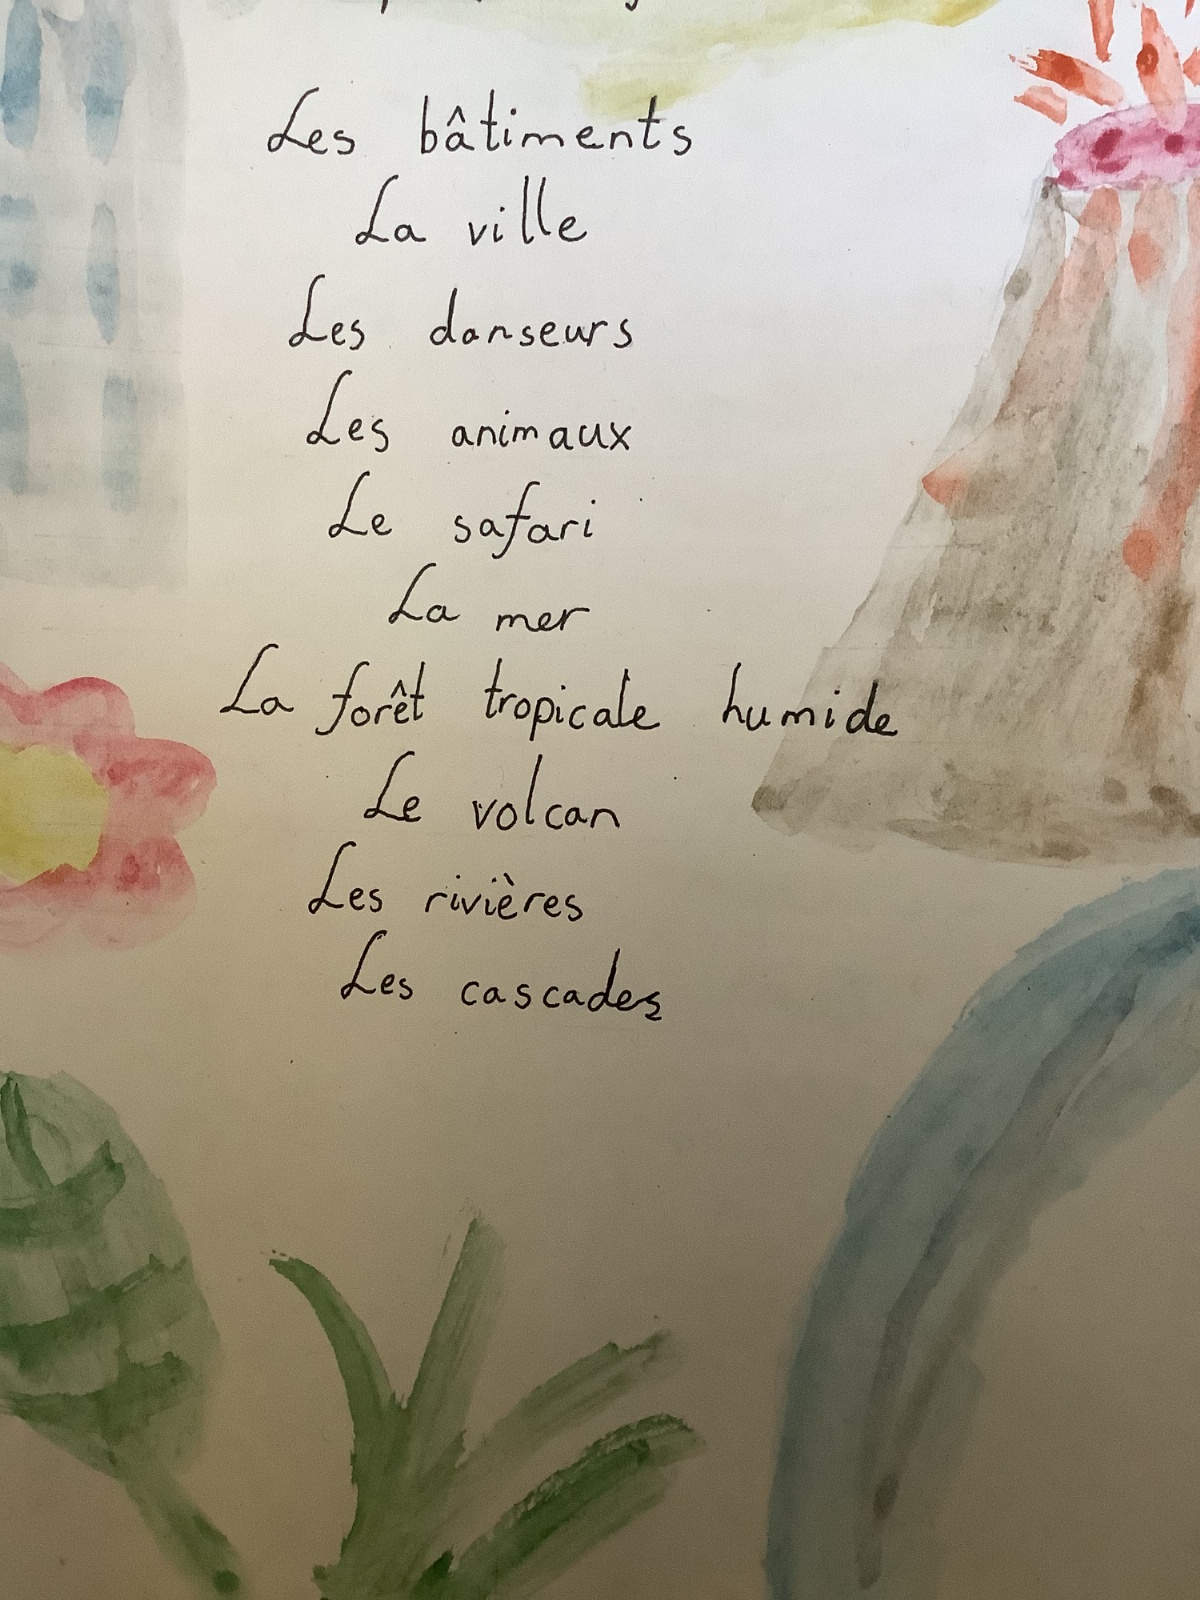 Les bâtiments
La ville
Les danseurs
Les animaux
Le safari
La mer
La forêt tropicale humide
Le volcan
Les rivières
Les cascades